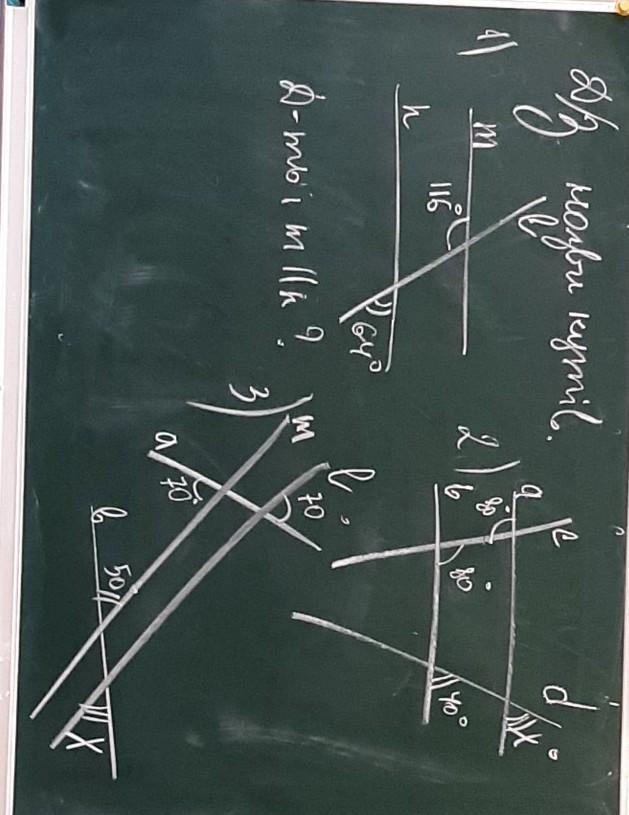 Д/З
1)
m
n
l
116°
64°
Д-ть: m || n ?
2)
a
b
c
d
80°
80°
40°
x°
3)
m
l
a
b
70°
70°
50
x